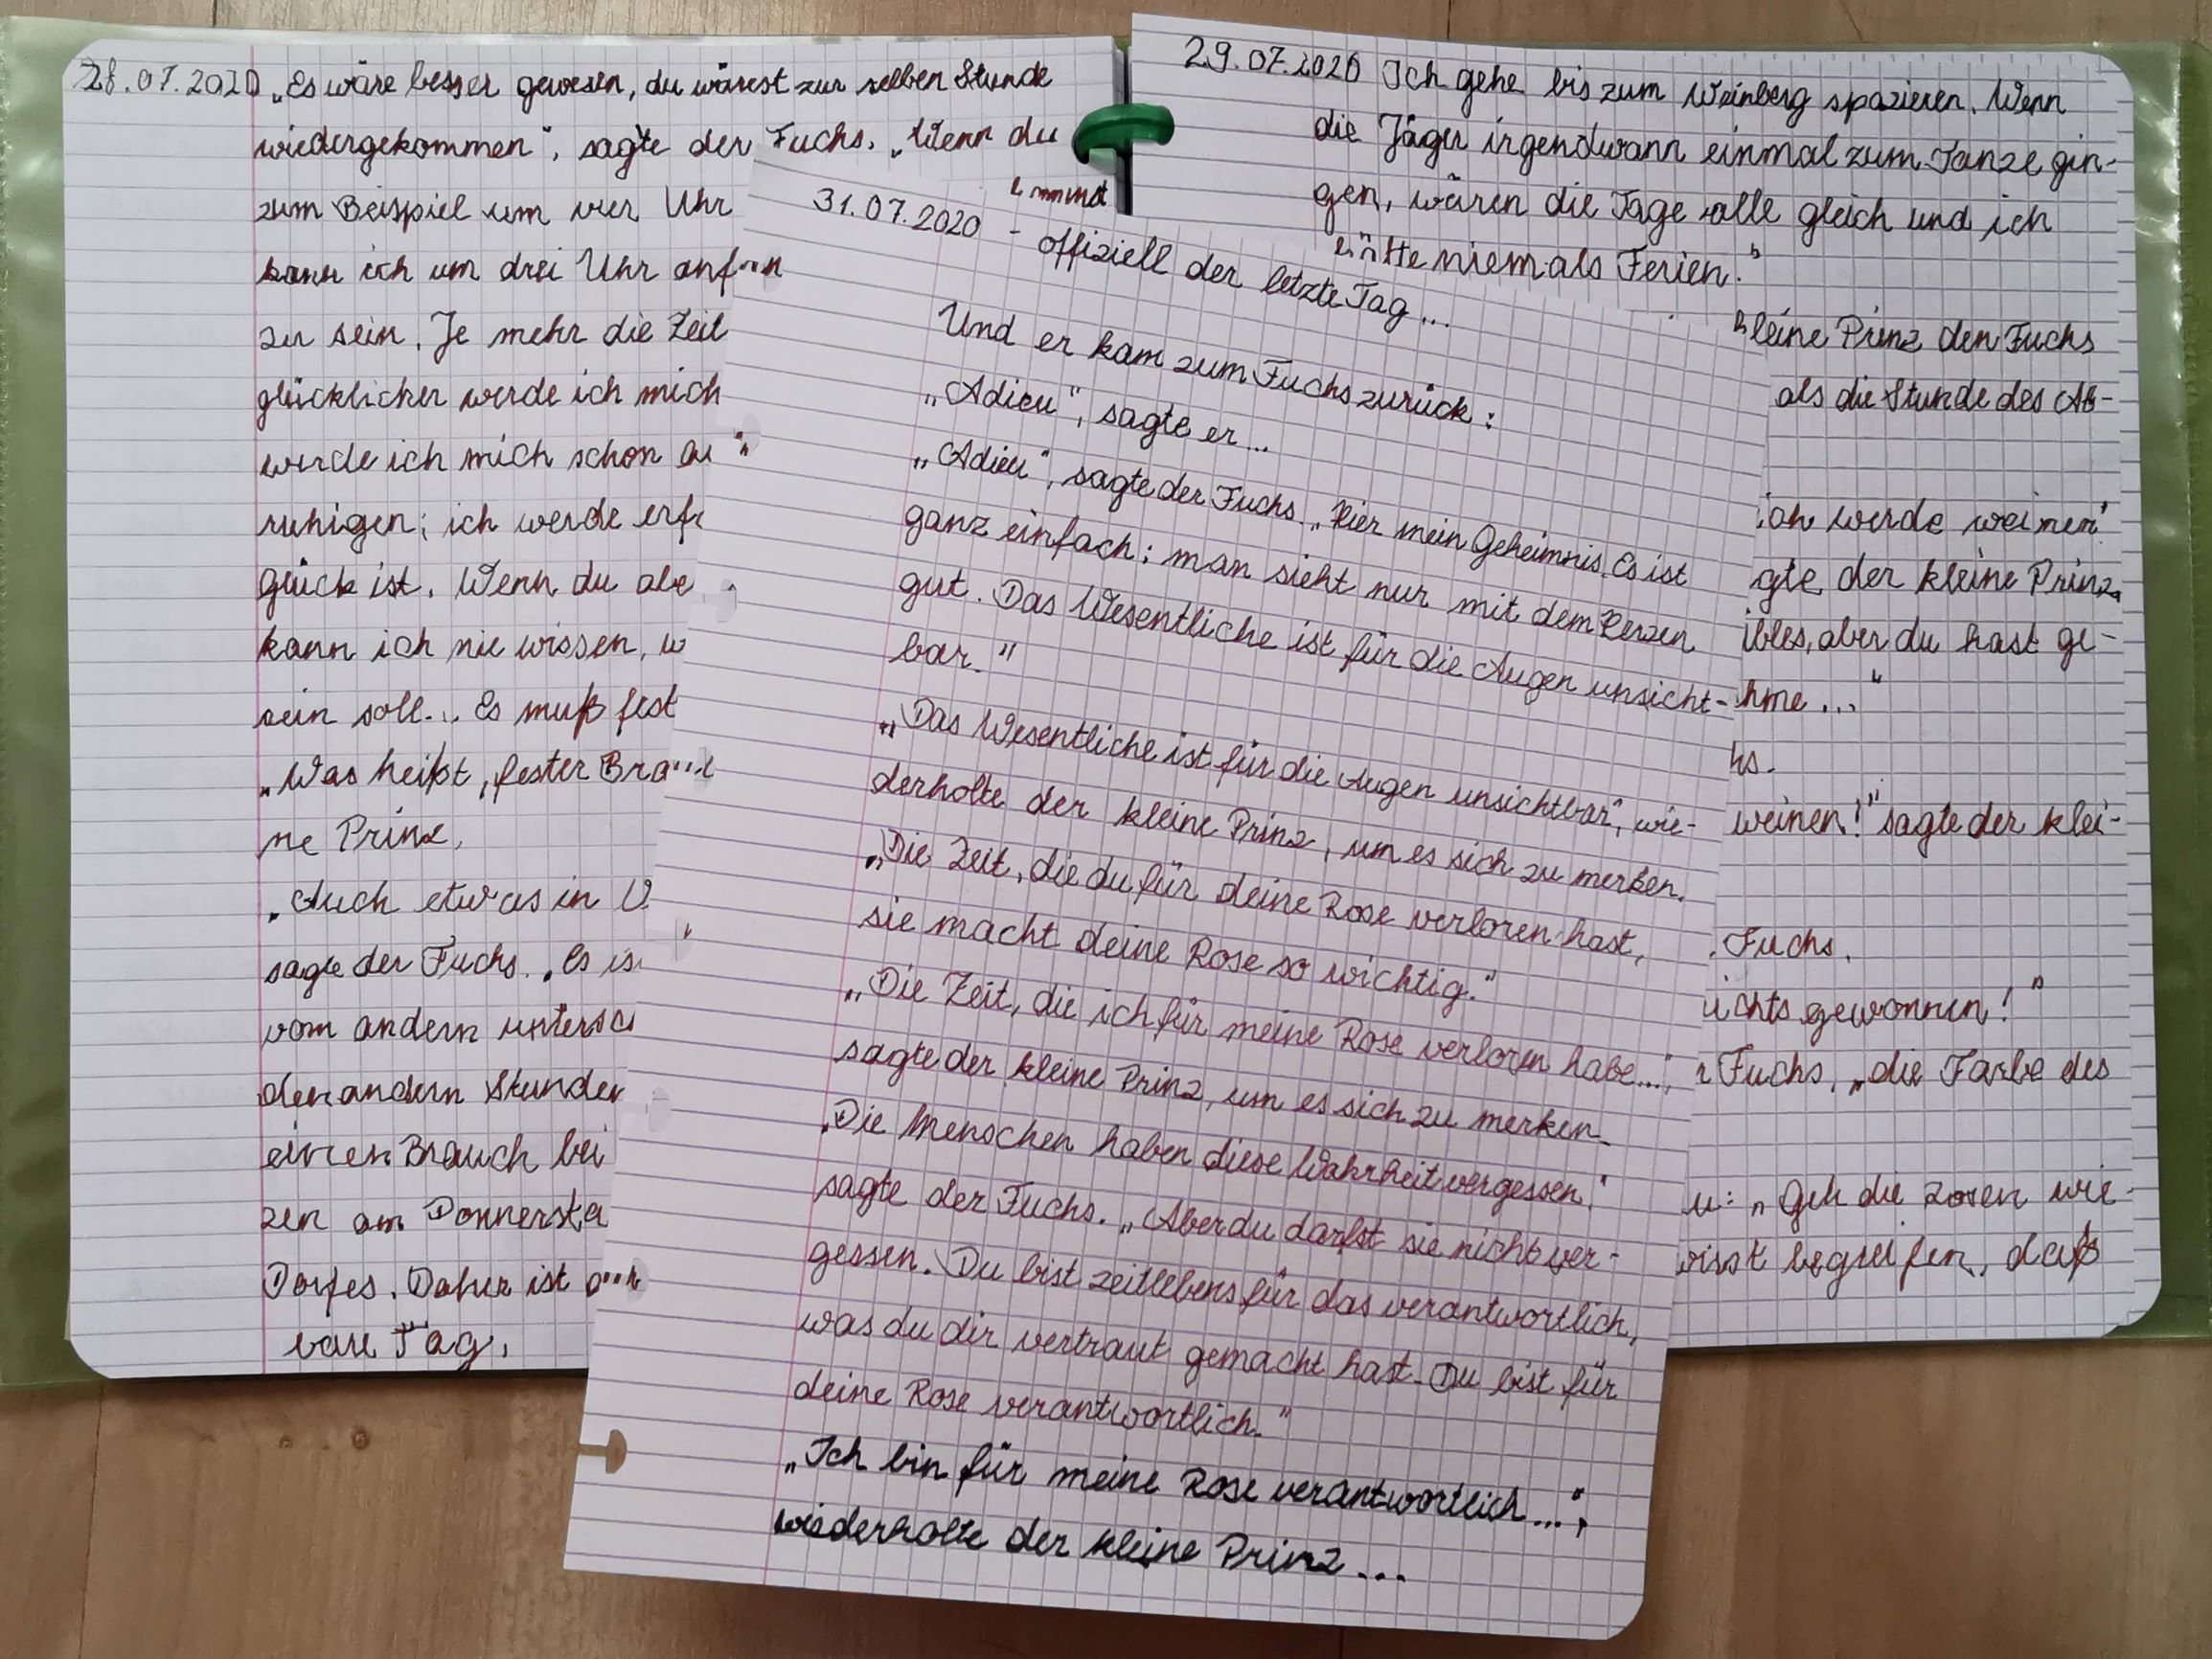 28.07.2020 „Es wäre besser gewesen, du wärest zur selben Stunde
wiedergekommen", sagte der Fuchs. „Wenn du
zum Beispiel um vier Uhr
kann ich um drei Uhr
zu sein. Je mehr die Zeit
glücklicher werde ich mich
werde ich mich schon
ruhigen; ich werde
Glück ist. Wenn du
kann ich nie wissen,
sein soll... Es muß fest
„Was heißt ‚fester
ne Prinz.
„Auch etwas in
sagte der Fuchs. „Es
vom andern
den andern Stunden
einen Brauch bei
zen am
Dorfes. Daher ist
bare Tag.
31.07.2020 - offiziell der letzte Tag...
Und er kam zum Fuchs zurück:
„Adieu", sagte er...
„Adieu", sagte der Fuchs. „Hier mein Geheimnis. Es ist
ganz einfach: man sieht nur mit dem Herzen
gut. Das Wesentliche ist für die Augen unsicht-
bar."
„Das Wesentliche ist für die Augen unsichtbar", wie-
derholte der kleine Prinz, um es sich zu merken.
„Die Zeit, die du für deine Rose verloren hast,
sie macht deine Rose so wichtig."
„Die Zeit, die ich für meine Rose verloren habe...",
sagte der kleine Prinz, um es sich zu merken.
„Die Menschen haben diese Wahrheit vergessen",
sagte der Fuchs. „Aber du darfst sie nicht ver-
gessen. Du bist zeitlebens für das verantwortlich,
was du dir vertraut gemacht hast. Du bist für
deine Rose verantwortlich."
„Ich bin für meine Rose verantwortlich...",
wiederholte der kleine Prinz...
29.07.2020 Ich gehe bis zum Weinberg spazieren. Wenn
die Jäger irgendwann einmal zum Tanze gin-
gen, wären die Tage alle gleich und ich
hätte niemals Ferien."
kleine Prinz den Fuchs
als die Stunde des Ab-
ich werde weinen"
gte der kleine Prinz
aber du hast ge-
hme..."
hs.
weinen!" sagte der klei-
Fuchs.
nichts gewonnen!"
Fuchs, „die Farbe des
„Geh die Rosen wie-
begreifen, daß